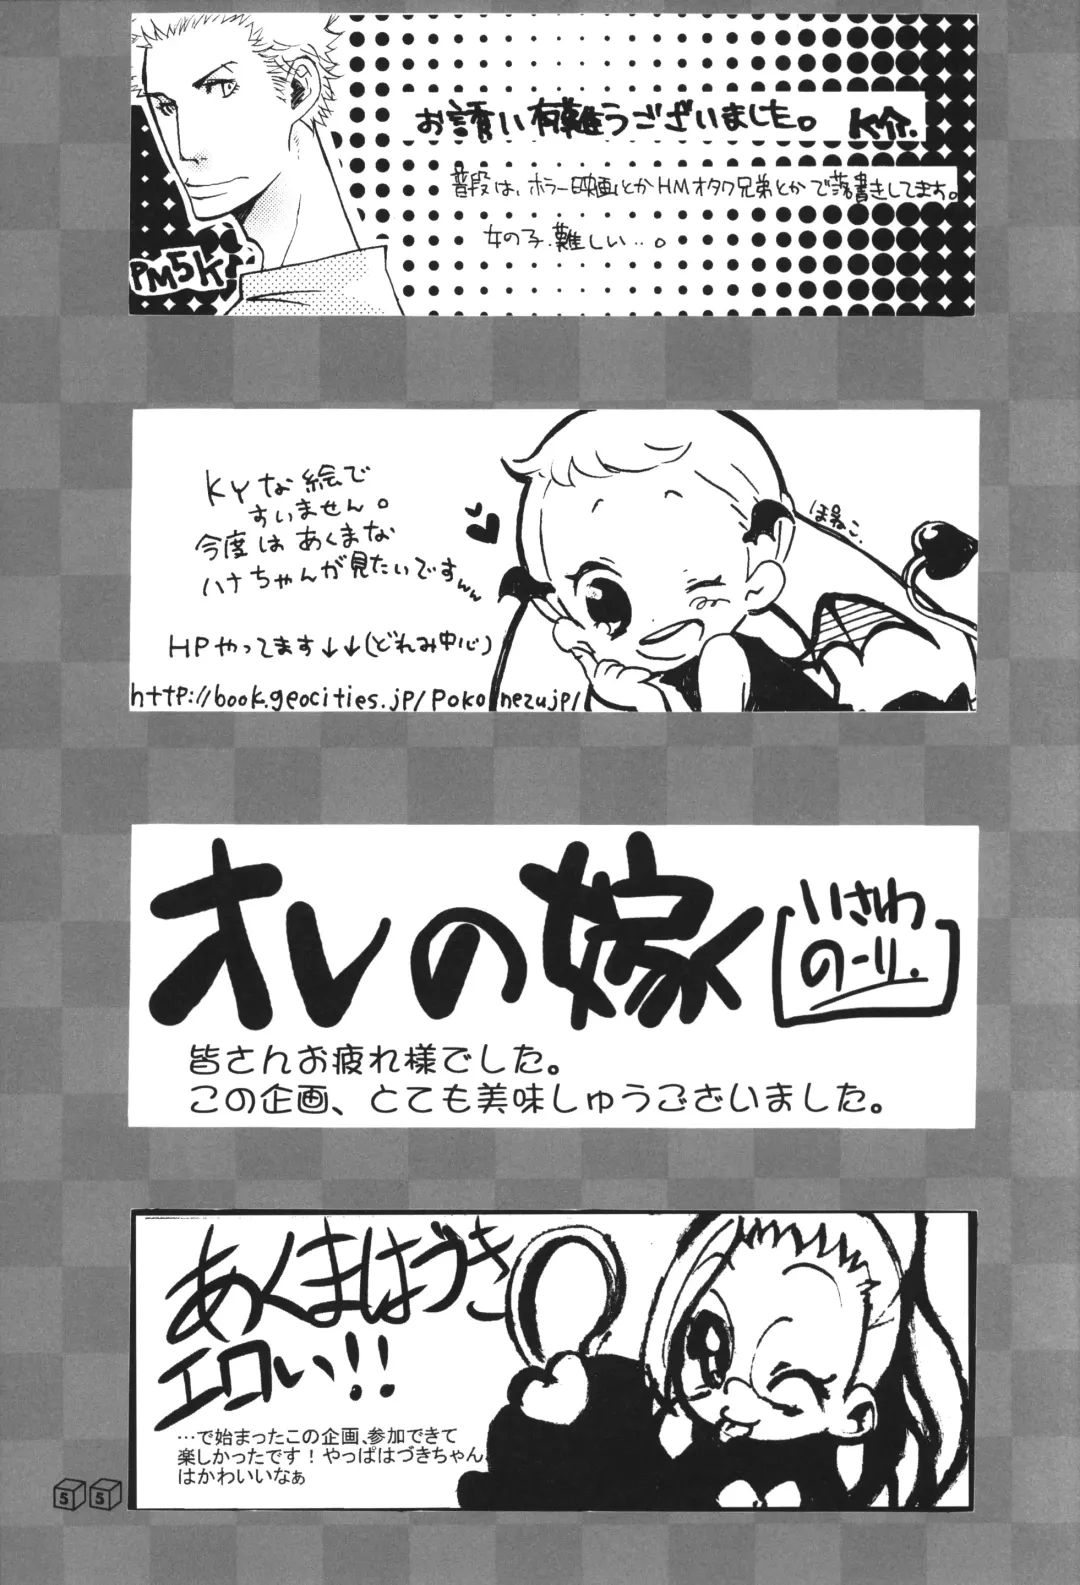 お誘い有難うございました。 K介.
普段は、ホラー映画とかHMオタク兄弟とかで落書きしてます。
女の子、難しい…。
PM5K
KYな絵で
すいません。
今度はあくまな
ハナちゃんが見たいですww
HPやってます↓↓(どれみ中心)
http://book.geocities.jp/poko
nezujp/
オレの嫁
いさわ
のーり.
皆さんお疲れ様でした。
この企画、とても美味しゅうございました。
あくまはづき
エロい!!
…で始まったこの企画、参加できて
楽しかったです！やっぱはづきちゃん
はかわいいなぁ
55